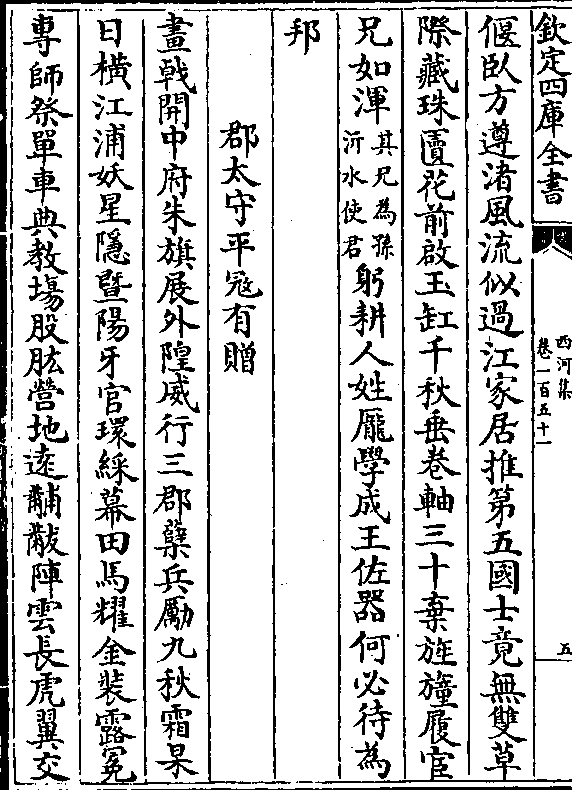 欽定四庫全書
西河集
卷一百五十一
五
偃臥方遵渚風流似過江家居推第五國士竟無雙草
際藏珠匵花前啟玉缸千秋垂卷軸三十棄旌幢履宦
兄如渾其兄為孫沂水使君躬耕人姓龎學成王佐器何必待為
邦
郡太守平冦有贈
畫戟開中府朱旗展外隍威行三郡櫱兵勵九秋霜杲
日橫江浦妖星隱暨陽牙官環綵幕田馬耀金裝露冕
專師祭單車典教塲股肱營地逺黼黻陣雲長虎翼交